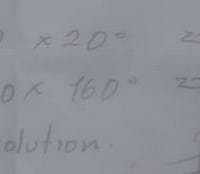 × 20° =
0 × 160° =
olution.